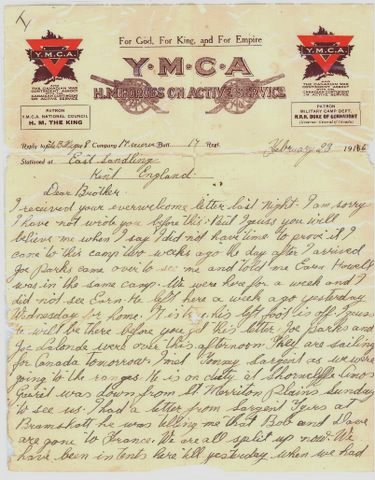 For God, For King, and For Empire
Y.M.C.A.
Y·M·C·A
Y.M.C.A.
H.M. FORCES ON ACTIVE SERVICE
THE CANADIAN WAR
CONTINGENT ASSOC
PATRON
Y.M.C.A. NATIONAL COUNCIL
H. M. THE KING
PATRON
MILITARY CAMP DEPT.
H.R.H. DUKE OF CONNAUGHT
(Governor General of Canada)
Reply to Company Reserve Batt. 17 Regt. February 23 1916
Stationed at East Sandling
Kent England
Dear Brother.
I received your everwelcome letter last night. I am sorry
I have not wrote you before this. But I guess you will
believe me when I say I did not have time to prove it I
came to this camp two weeks ago the day after I arrived
Joe Parks came over to see me and told me Earn Howell
was in the same camp. We were here for a week and I
did not see Earn. He left here a week ago yesterday
Wednesday for home. It is his left foot is off. I guess
he will be there before you get this letter. Joe Parks and
Joe Lalonde were over this afternoon. They are sailing
for Canada tomorrow. I met Tommy Sargent as we were
going to the ranges. He is on duty at Shorncliffe
was down from Plains Sunday
to see us. I had a letter from Sargent at
Bramshott he was telling me that Bob and Dave
are gone to France. We are all split up now. We
have been in tents here till yesterday when we had